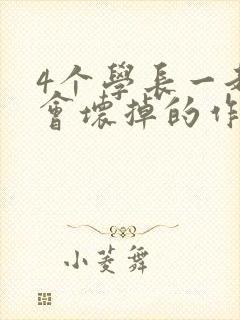 4个學長一起
會壞掉的作
小菱舞